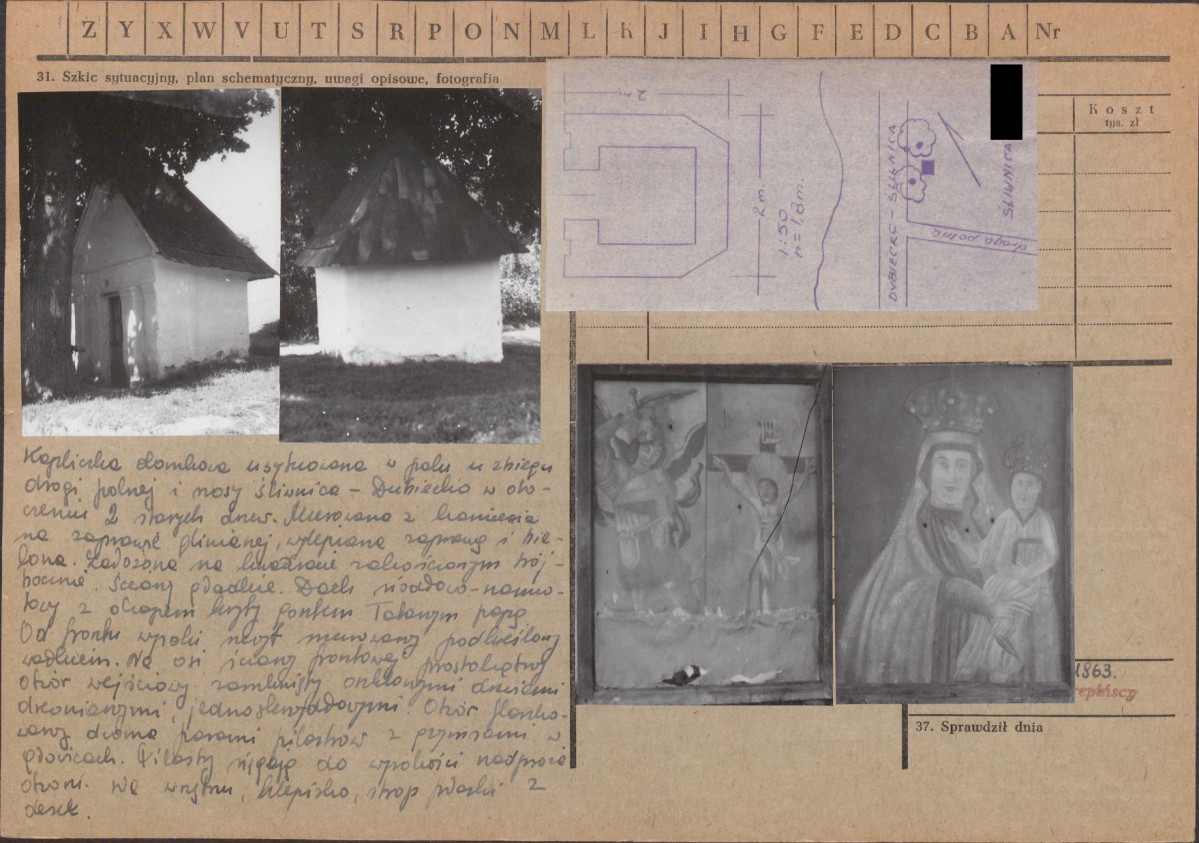 Z Y X W V U T S R P O N M L K J I H G F E D C B A Nr
31. Szkic sytuacyjny, plan schematyczny, uwagi opisowe, fotografia
Koszt
tys. zł
2 m.
2 m.
1:50
h=1,8m.
DUBIECKO - ŚLIWNICA
droga polna
ŚLIWNICA
Kapliczka domkowa usytuowana w polu u zbiegu
drogi polnej i szosy Śliwnica - Dubiecko w oto-
czeniu 2 starych drzew. Murowana z kamienia
na zaprawie glinianej, wylepiana zaprawą i bie-
lona. Założona na kwadracie zakończonym trój-
bocznie. Ściany gładkie. Dach siodłowo-namio-
towy z okapem kryty gontem łatanym papą
Od frontu wysoki szczyt murowany podkreślony
wałkiem. Na osi ściany frontowej prostokątny
otwór wejściowy zamknięty drzwiami
drewnianymi, jednoskrzydłowymi. Otwór flanko-
wany dwoma parami pilastrów z gzymsami w
głowicach. Pilastry sięgają do wysokości nadproża
otworu. We wnętrzu, klepisko, strop płaski z
desek.
1963.
37. Sprawdził dnia